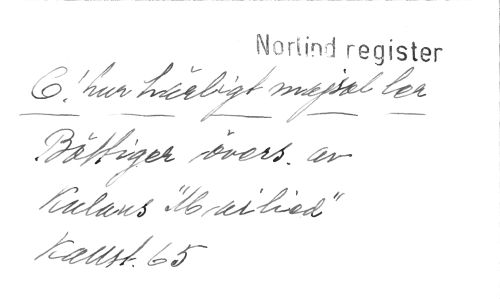 Norlind register
O! hur härligt majsol ler
Böttiger övers. av
Kulaus "Mailied"
Kallst. 65